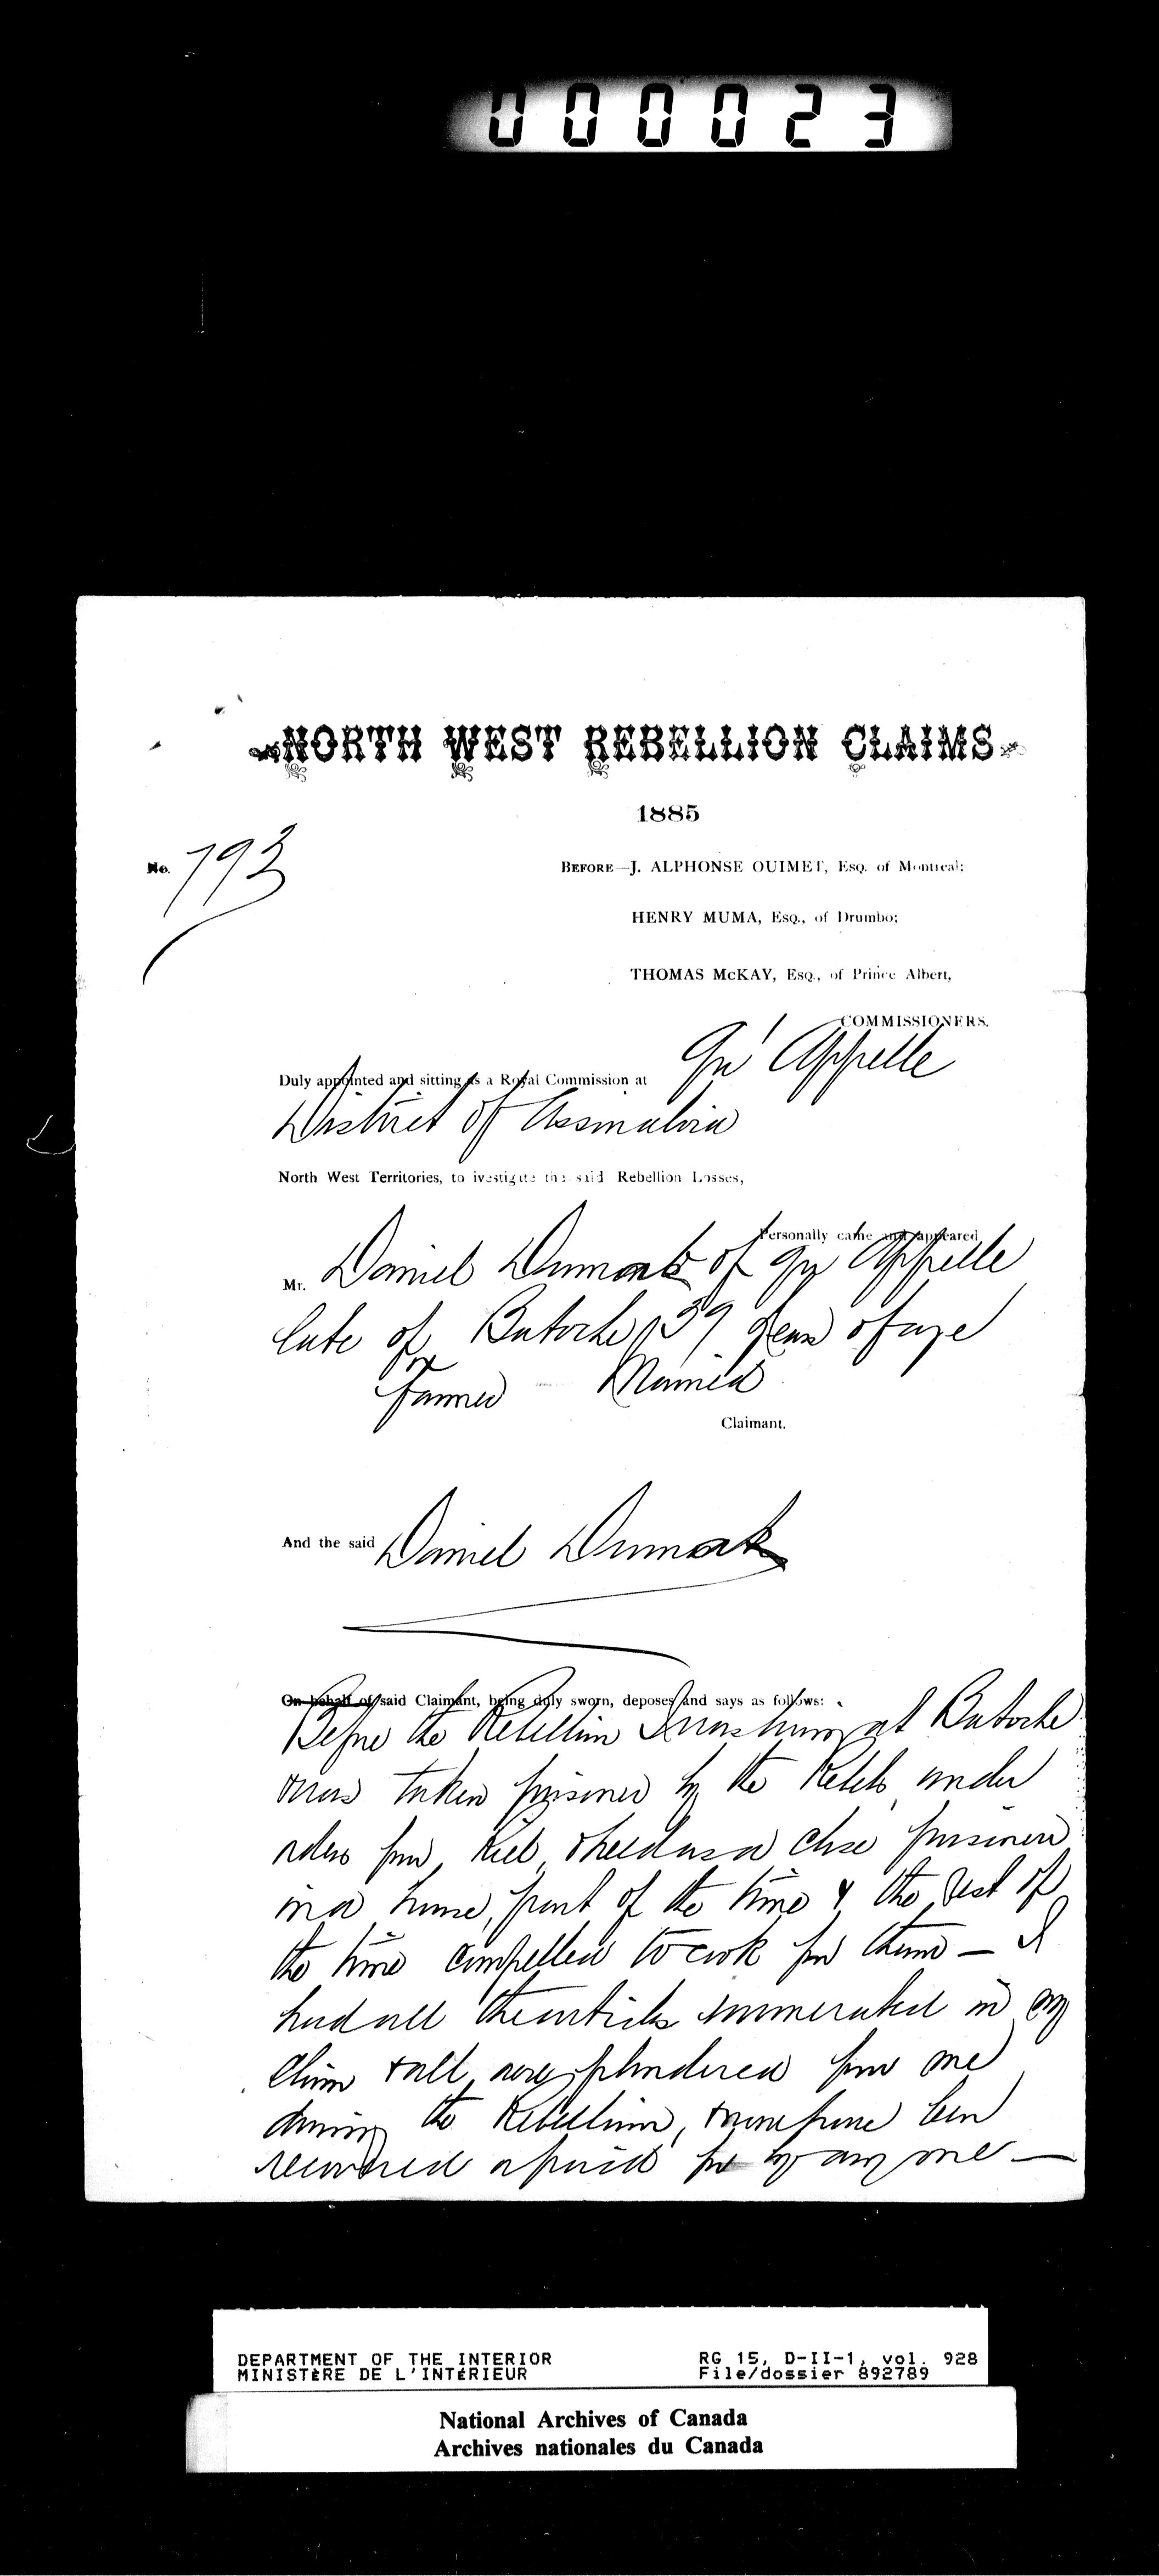 000023
NORTH WEST REBELLION CLAIMS
1885
No. 793
BEFORE—J. ALPHONSE OUIMET, Esq. of Montreal;
HENRY MUMA, Esq., of Drumbo;
THOMAS McKAY, Esq., of Prince Albert,
COMMISSIONERS.
Duly appointed and sitting as a Royal Commission at Qu'Appelle
District of Assinaboia
North West Territories, to ivestigate the said Rebellion Losses,
Personally came and appeared
Mr. Daniel Dumont of Qu Appelle
late of Batoche, 39 years of age
farmer Married
Claimant.
And the said Daniel Dumont
On behalf of said Claimant, being duly sworn, deposes and says as follows:
Before the Rebellion I was living at Batoche
& was taken prisoner by the Rebels under
orders from Riel & held as a close prisoner
in a house, part of the time & the rest of
the time compelled to cook for them — I
had all the articles enumerated in my
claim & all were plundered from me
during the Rebellion, & none have been
recovered or paid for by any one —
DEPARTMENT OF THE INTERIOR
MINISTÈRE DE L'INTÉRIEUR
RG 15, D-II-1, vol. 928
File/dossier 892789
National Archives of Canada
Archives nationales du Canada